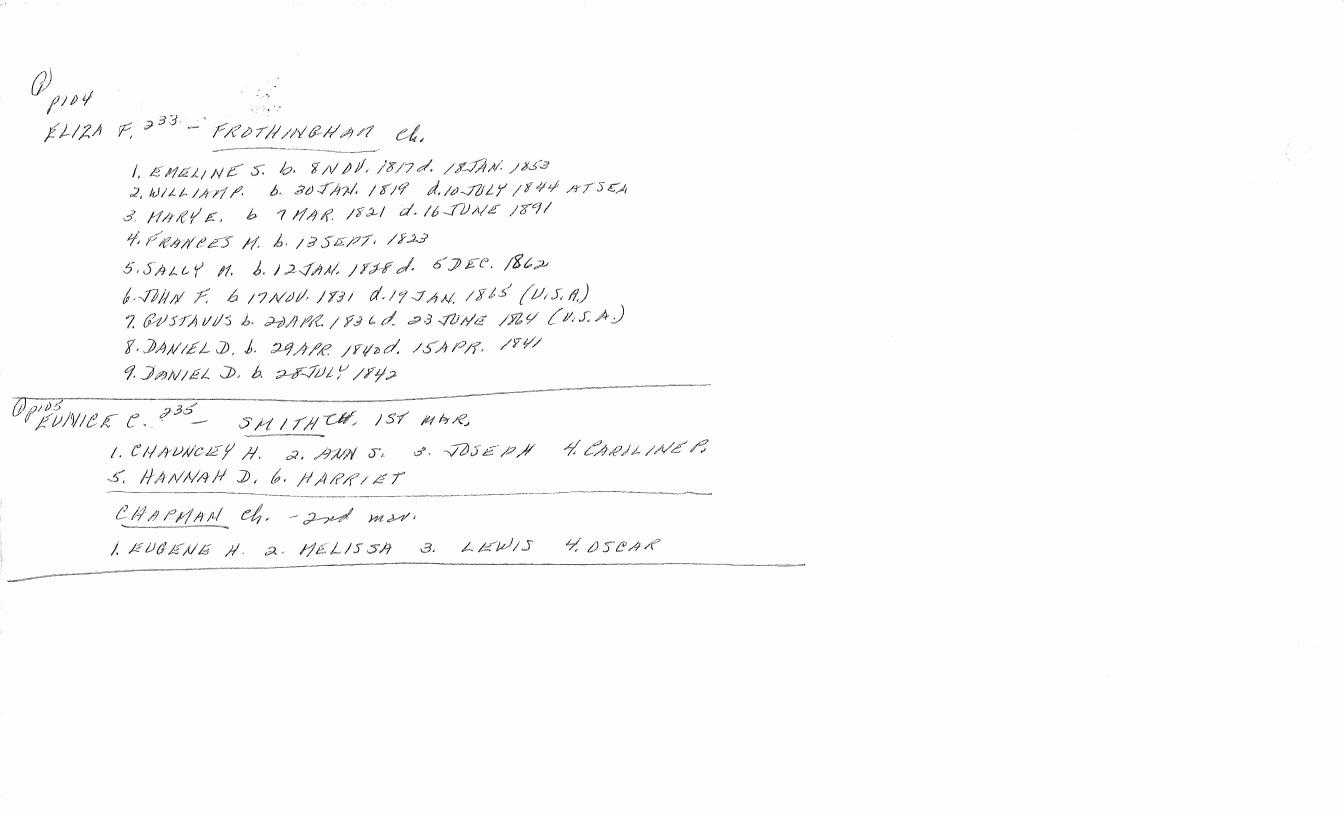 ① p104
ELIZA F. 233 - FROTHINGHAM ch.
1. EMELINE S. b. 8 NOV. 1817 d. 18 JAN. 1853
2. WILLIAM P. b. 30 JAN. 1819 d. 10 JULY 1844 AT SEA
3. MARY E. b 7 MAR. 1821 d. 16 JUNE 1891
4. FRANCES M. b. 13 SEPT. 1823
5. SALLY M. b. 12 JAN. 1828 d. 5 DEC. 1862
6. JOHN F. b 17 NOV. 1831 d. 19 JAN. 1865 (U.S.A.)
7. GUSTAVUS b. 20 APR. 1836 d. 23 JUNE 1864 (U.S.A.)
8. DANIEL D. b. 29 APR. 1840 d. 15 APR. 1841
9. DANIEL D. b. 28 JULY 1842
① p105
EUNICE C. 235 - SMITH CH. 1ST MAR.
1. CHAUNCEY H. 2. ANN S. 3. JOSEPH 4. CARILINE P.
5. HANNAH D. 6. HARRIET
CHAPMAN ch. - 2nd mar.
1. EUGENE H. 2. MELISSA 3. LEWIS 4. OSCAR